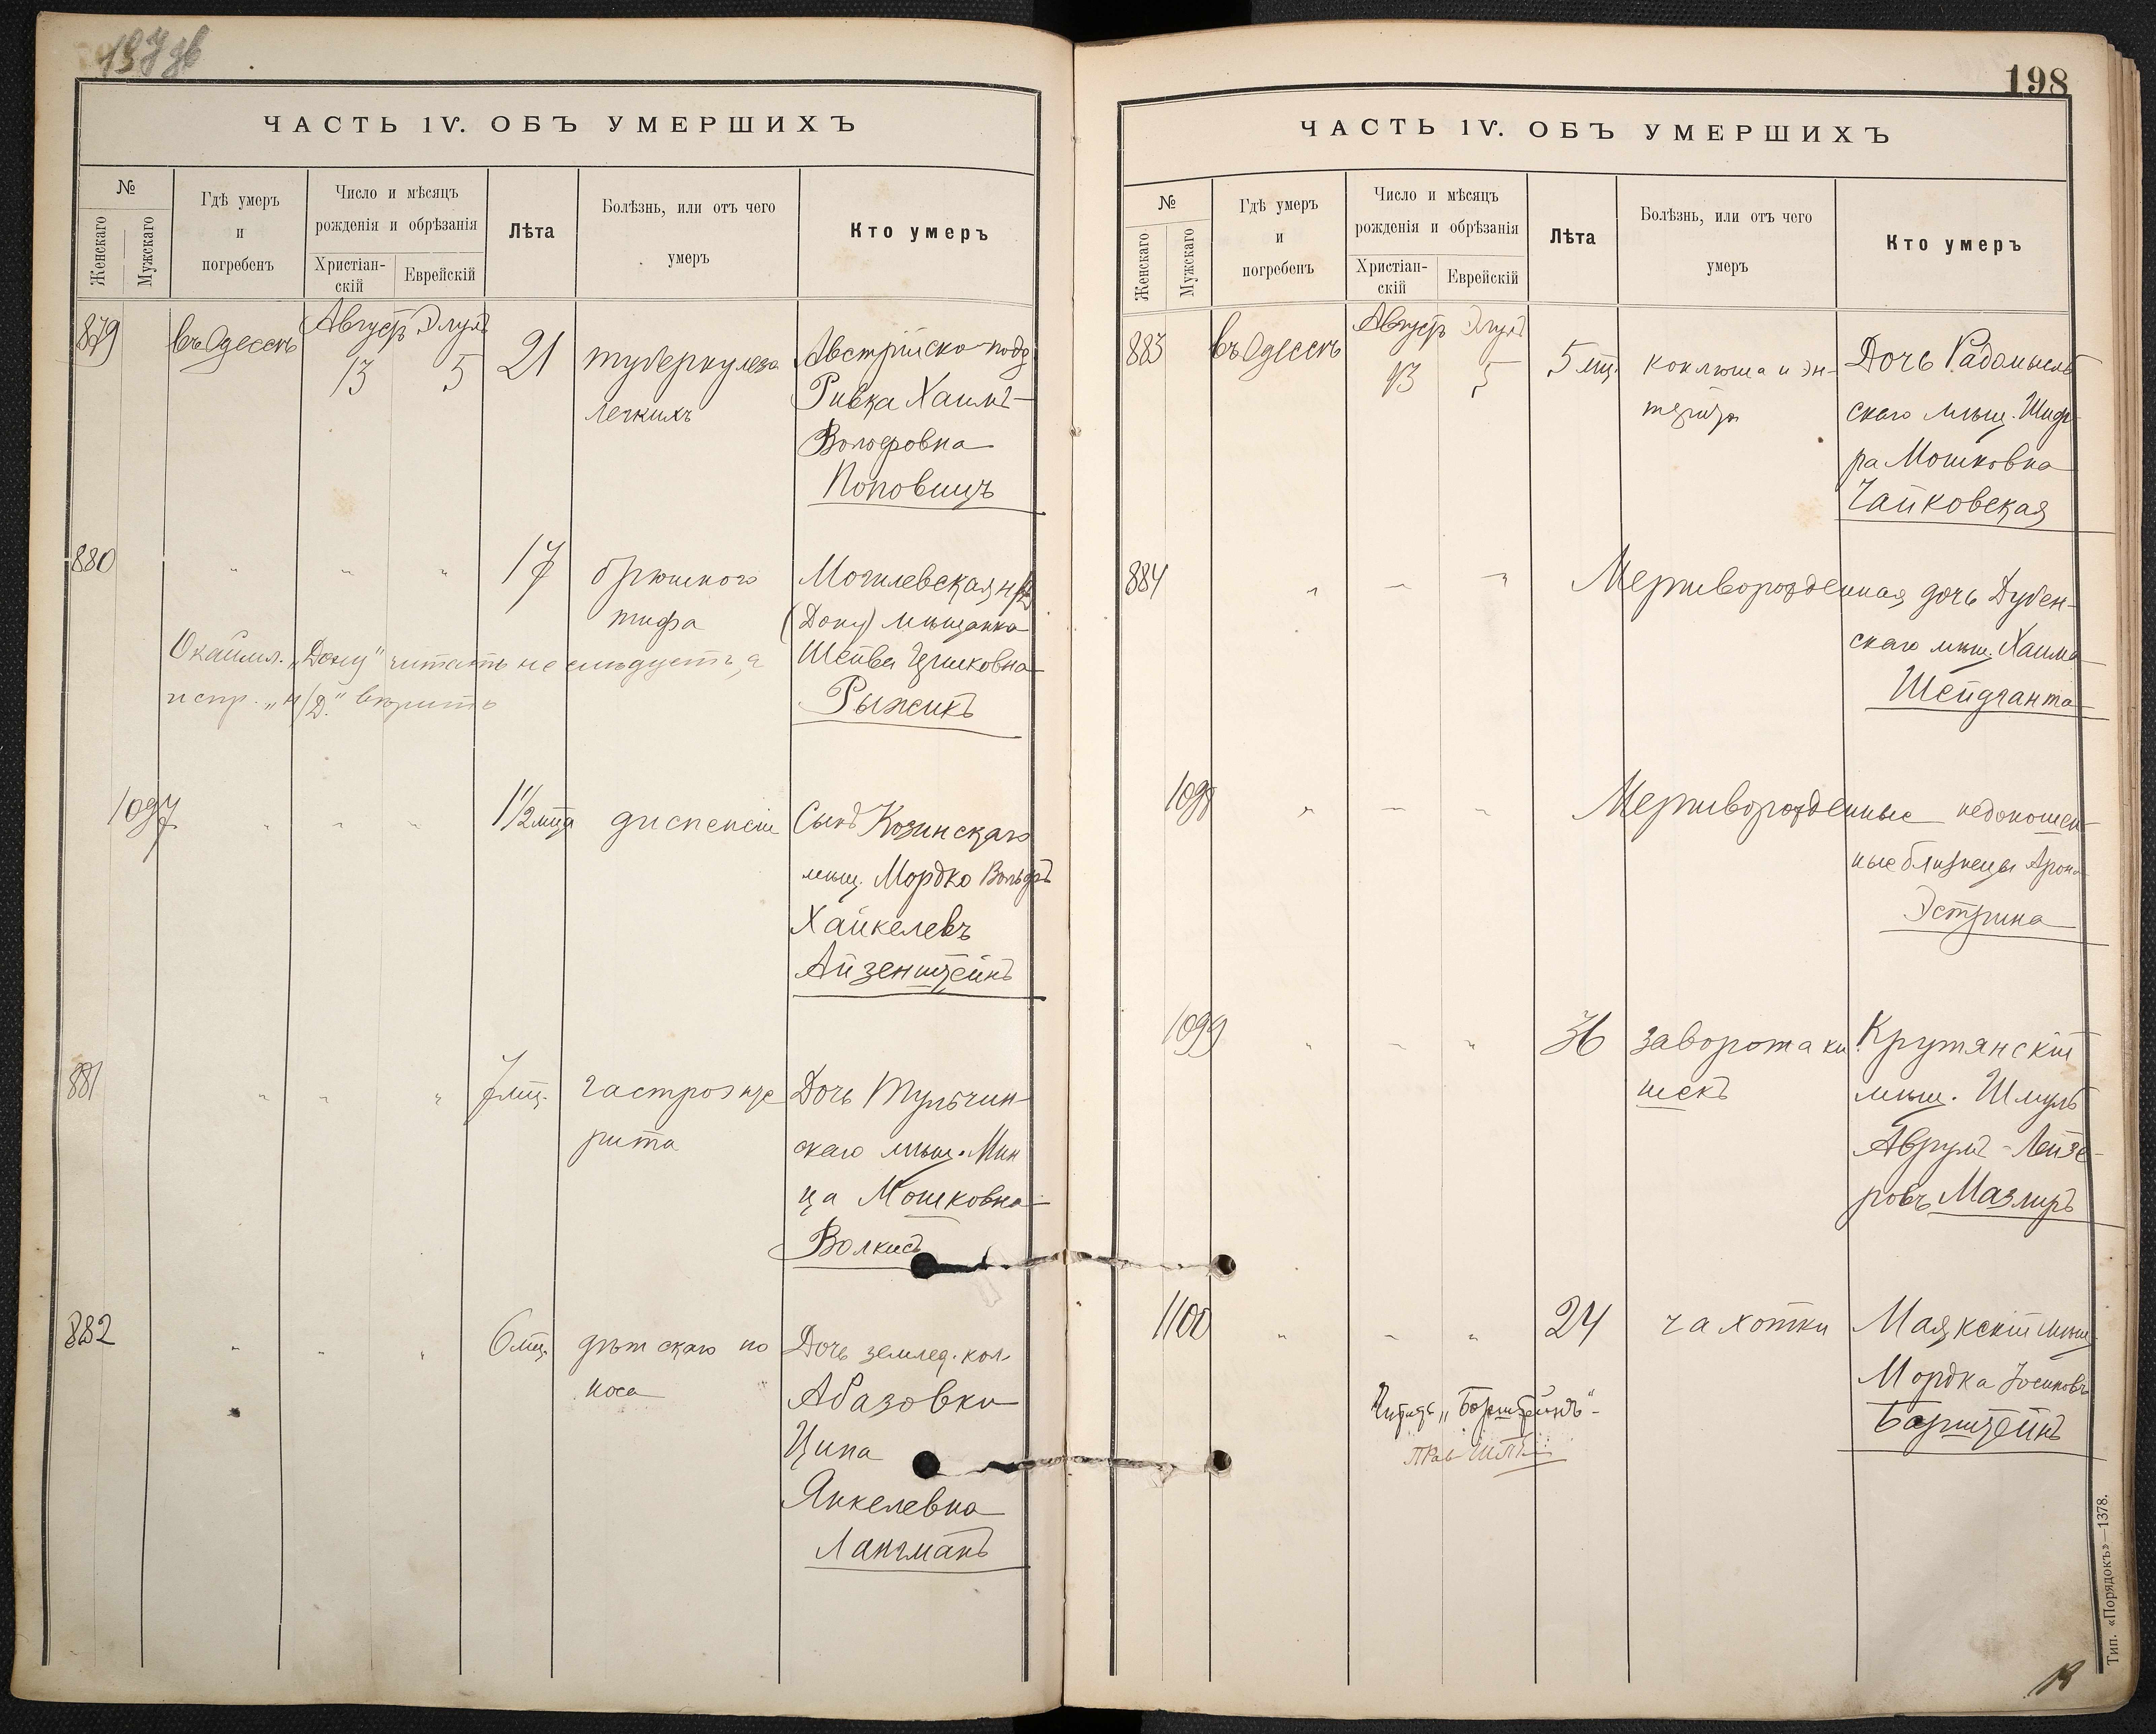 ЧАСТЬ IV. ОБЪ УМЕРШИХЪ
№
Женскаго
Мужскаго
Гдѣ умеръ
и
погребенъ
Число и мѣсяцъ
рожденія и обрѣзанія
Христіан-
скій
Еврейскій
Лѣта
Болѣзнь, или отъ чего
умеръ
Кто умеръ
879 въ Одессѣ Августъ Элулъ
13 5 21 туберкулеза
легкихъ
Австрійско-подд
Ривка Хаимъ-
Вольфовна
Поповицъ
880 " " " 17 брюшного
тифа
Могилевская н/Д
(Дону) мѣщанка
Шейва Ицковна
Рыжикъ
Окаймл. „Дону" читать не слѣдуетъ, а
испр. „н/Д." вѣрить
1097 " " " 1½ мца диспепсіи
Сынъ Козинскаго
мѣщ. Мордко Вольфъ
Хайкелевъ
Айзенштейнъ
881 " " " 7 мц. гастроэнте
рита
Дочь Тульчин-
скаго мѣщ. Мин
ца Мошковна
Волкисъ
882 " " " 6 мц. дѣтскаго по
носа
Дочь землед. кол.
Абазовки
Ципа
Янкелевна
Лангманъ
198
ЧАСТЬ IV. ОБЪ УМЕРШИХЪ
№
Женскаго
Мужскаго
Гдѣ умеръ
и
погребенъ
Число и мѣсяцъ
рожденія и обрѣзанія
Христіан-
скій
Еврейскій
Лѣта
Болѣзнь, или отъ чего
умеръ
Кто умеръ
883 въ Одессѣ Августъ Элулъ
13 5 5 мц. коклюша и эн-
терита
Дочь Радомысль
скаго мѣщ. Шиф
ра Мошковна
Чайковская
884 " " " Мертворожденная дочь Дубен-
скаго мѣщ. Хаима
Шейдганта
1098 " " " Мертворожденные недоношен-
ные близнецы Арона
Эстрина
1099 " " " 36 заворота ки
шекъ
Крутянскій
мѣщ. Шмуль
Аврумъ-Лейзе-
ровъ Мазлиръ
1100 " " " 24 чахотки
Маякскій мѣщ.
Мордка Іосиповъ
Борштейнъ
Читать „Борштейнъ"-
Тип. «Порядокъ»—1378.